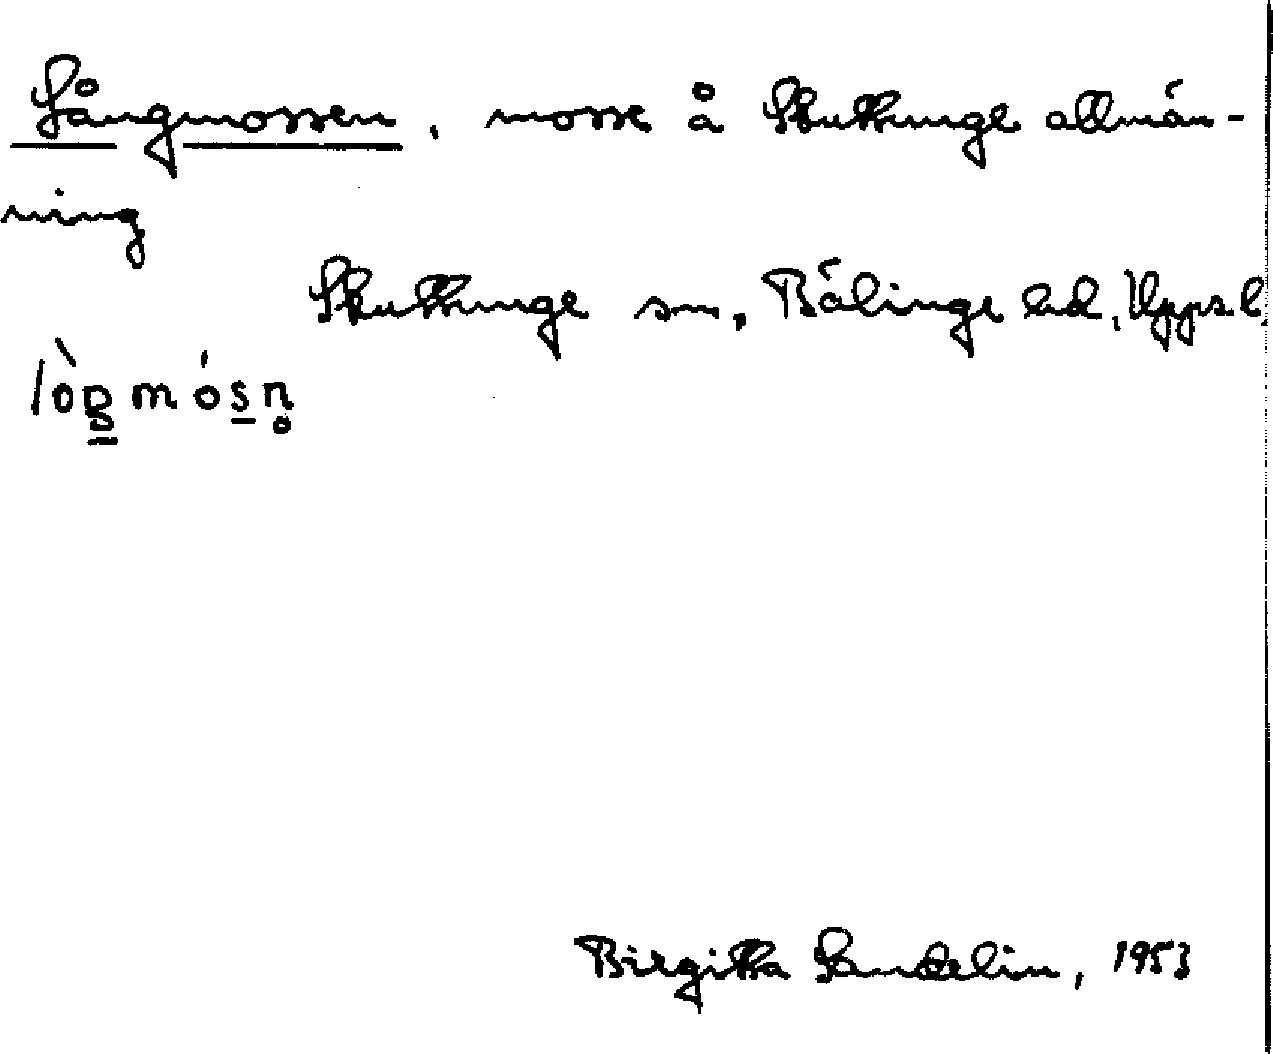 Långmossen, mosse å Skuttunge allmän-
ning
Skuttunge sn, Bälinge hd, Upps. l.
Birgitta Sandelin, 1953